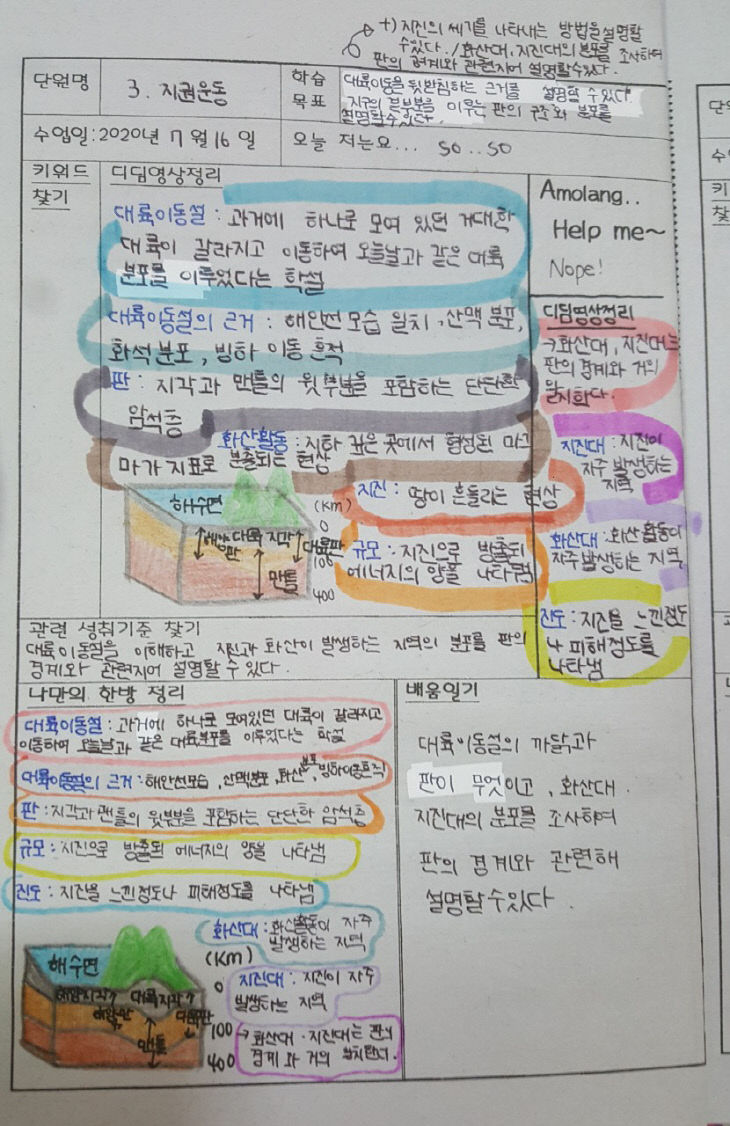 +) 지진의 세기를 나타내는 방법을 설명할
수있다. /화산대, 지진대의 분포를 조사하여
판의 경계와 관련지어 설명할수있다.
단원명
3. 지권운동
학습
목표
대륙이동을 뒷받침하는 근거를 설명할 수 있다.
지구의 겉부분을 이루는 판의 구조와 분포를
설명할수있다.
수업일:2020년 7월 16일
오늘 저는요... so..so
키워드
찾기
디딤영상정리
대륙이동설 : 과거에 하나로 모여 있던 거대한
대륙이 갈라지고 이동하여 오늘날과 같은 대륙
분포를 이루었다는 학설
대륙이동설의 근거 : 해안선 모습 일치, 산맥 분포,
화석 분포, 빙하 이동 흔적
판 : 지각과 맨틀의 윗부분을 포함하는 단단한
암석층
화산활동 : 지하 깊은 곳에서 형성된 마그
마가 지표로 분출되는 현상
지진 : 땅이 흔들리는 현상
규모 : 지진으로 방출되
에너지의 양을 나타냄
해수면
(km)
0
해양판
대륙 지각
대륙판
100
맨틀
400
Amolang..
Help me~
Nope!
디딤영상정리
→화산대, 지진대는
판의 경계와 거의
일치한다.
지진대 : 지진이
자주 발생하는
지역
화산대 : 화산 활동이
자주 발생하는 지역
진도 : 지진을 느낀정도
나 피해정도를
나타냄
관련 성취기준 찾기
대륙이동설을 이해하고 지진과 화산이 발생하는 지역의 분포를 판의
경계와 관련지어 설명할 수 있다.
나만의 한방 정리
대륙이동설 : 과거에 하나로 모여있던 대륙이 갈라지고
이동하여 오늘날과 같은 대륙분포를 이루었다는 학설
대륙이동설의 근거 : 해안선모습, 산맥분포, 화산분포, 빙하이동흔적
판 : 지각과 맨틀의 윗부분을 포함하는 단단한 암석층
규모 : 지진으로 방출된 에너지의 양을 나타냄
진도 : 지진을 느낀정도나 피해정도를 나타냄
화산대 : 화산활동이 자주
발생하는 지역
지진대 : 지진이 자주
발생하는 지역
→화산대·지진대는 판의
경계와 거의 일치한다.
해수면
(km)
해양지각
대륙지각
0
해양판
대륙판
100
맨틀
400
배움일기
대륙이동설의 까닭과
판이 무엇이고, 화산대.
지진대의 분포를 조사하여
판의 경계와 관련해
설명할수있다.